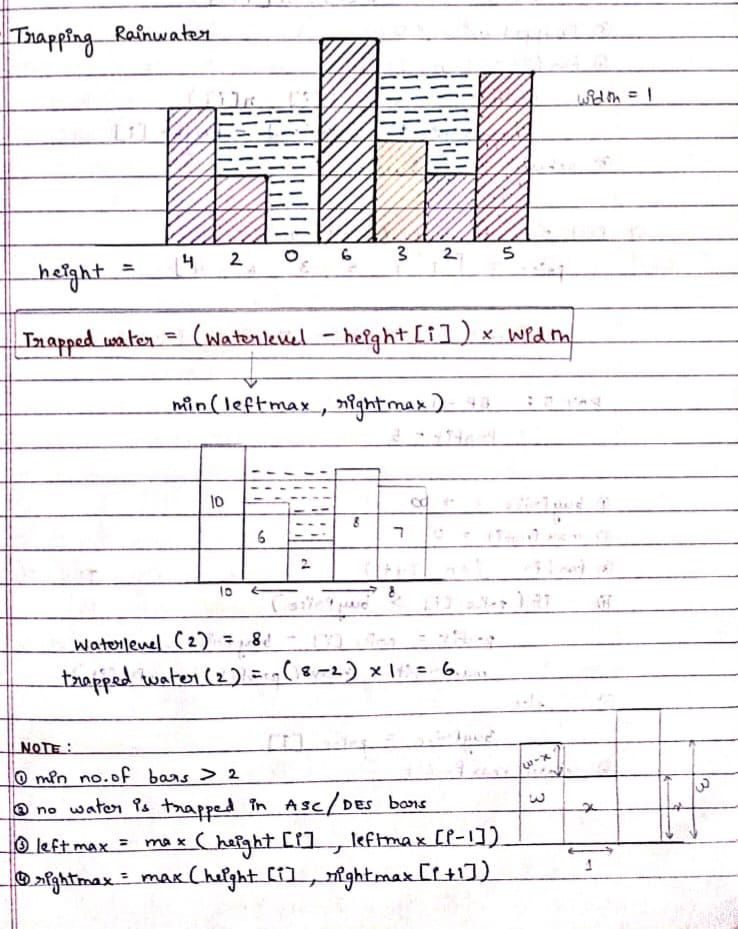 Trapping Rainwater
width = 1
height = 4 2 0 6 3 2 5
Trapped water = (waterlevel - height[i]) x width
min(leftmax, rightmax)
10
6
2
8
7
10
8
waterlevel (2) = 8
trapped water (2) = (8-2) x 1 = 6
NOTE :
① min no.of bars > 2
② no water is trapped in ASC/DES bars
③ leftmax = max (height [i], leftmax [i-1])
④ rightmax = max (height [i], rightmax [i+1])
w-x
w
x
x
w
1